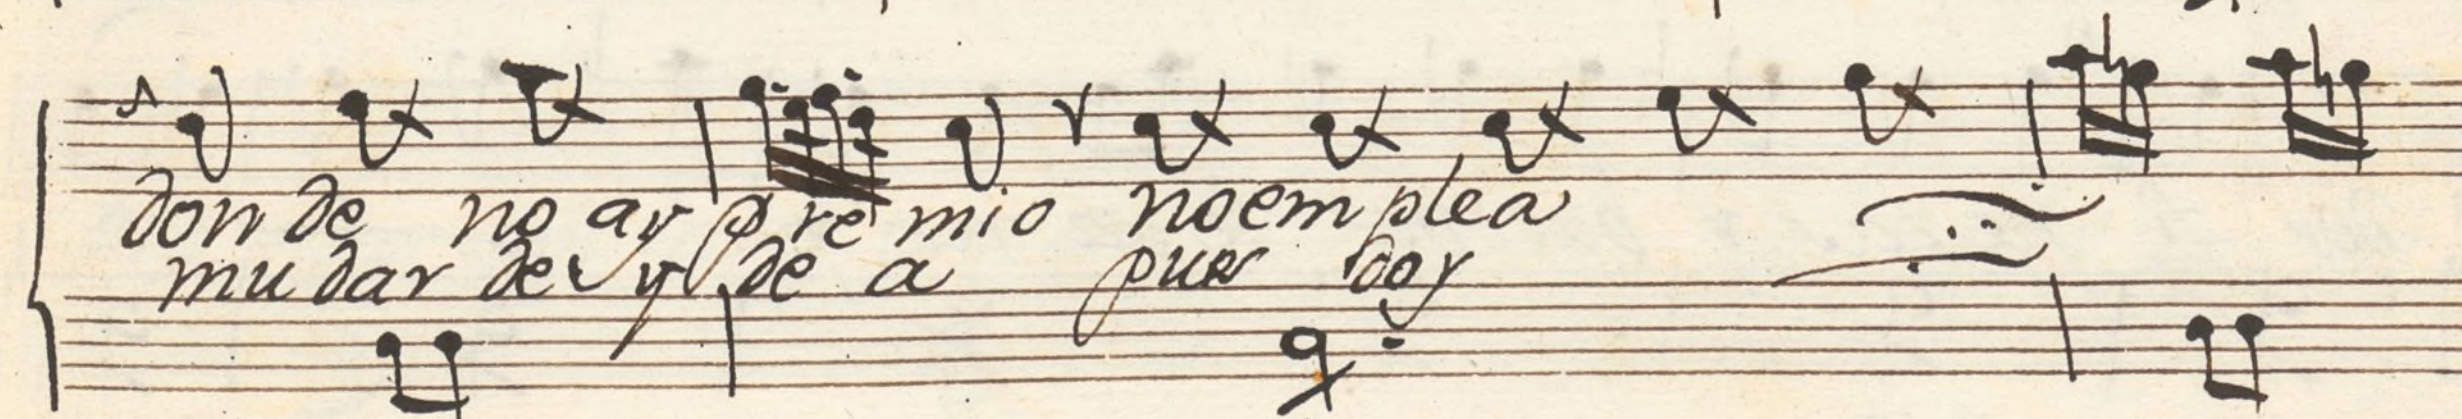 don de no ay pre mio no em plea
mu dar de y de a pues doy